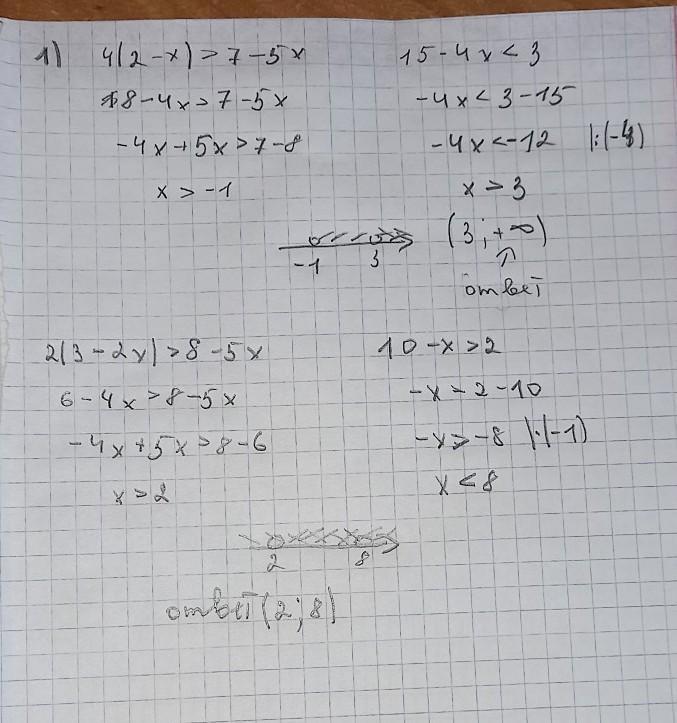 1) 4(2-x)>7-5x
8-4x>7-5x
-4x+5x>7-8
x>-1
15-4x<3
-4x<3-15
-4x<-12 |:(-4)
x>3
-1 3
(3;+∞)
ответ
2(3-2x)>8-5x
6-4x>8-5x
-4x+5x>8-6
x>2
10-x>2
-x>2-10
-x>-8 |·(-1)
x<8
2 8
ответ (2;8)